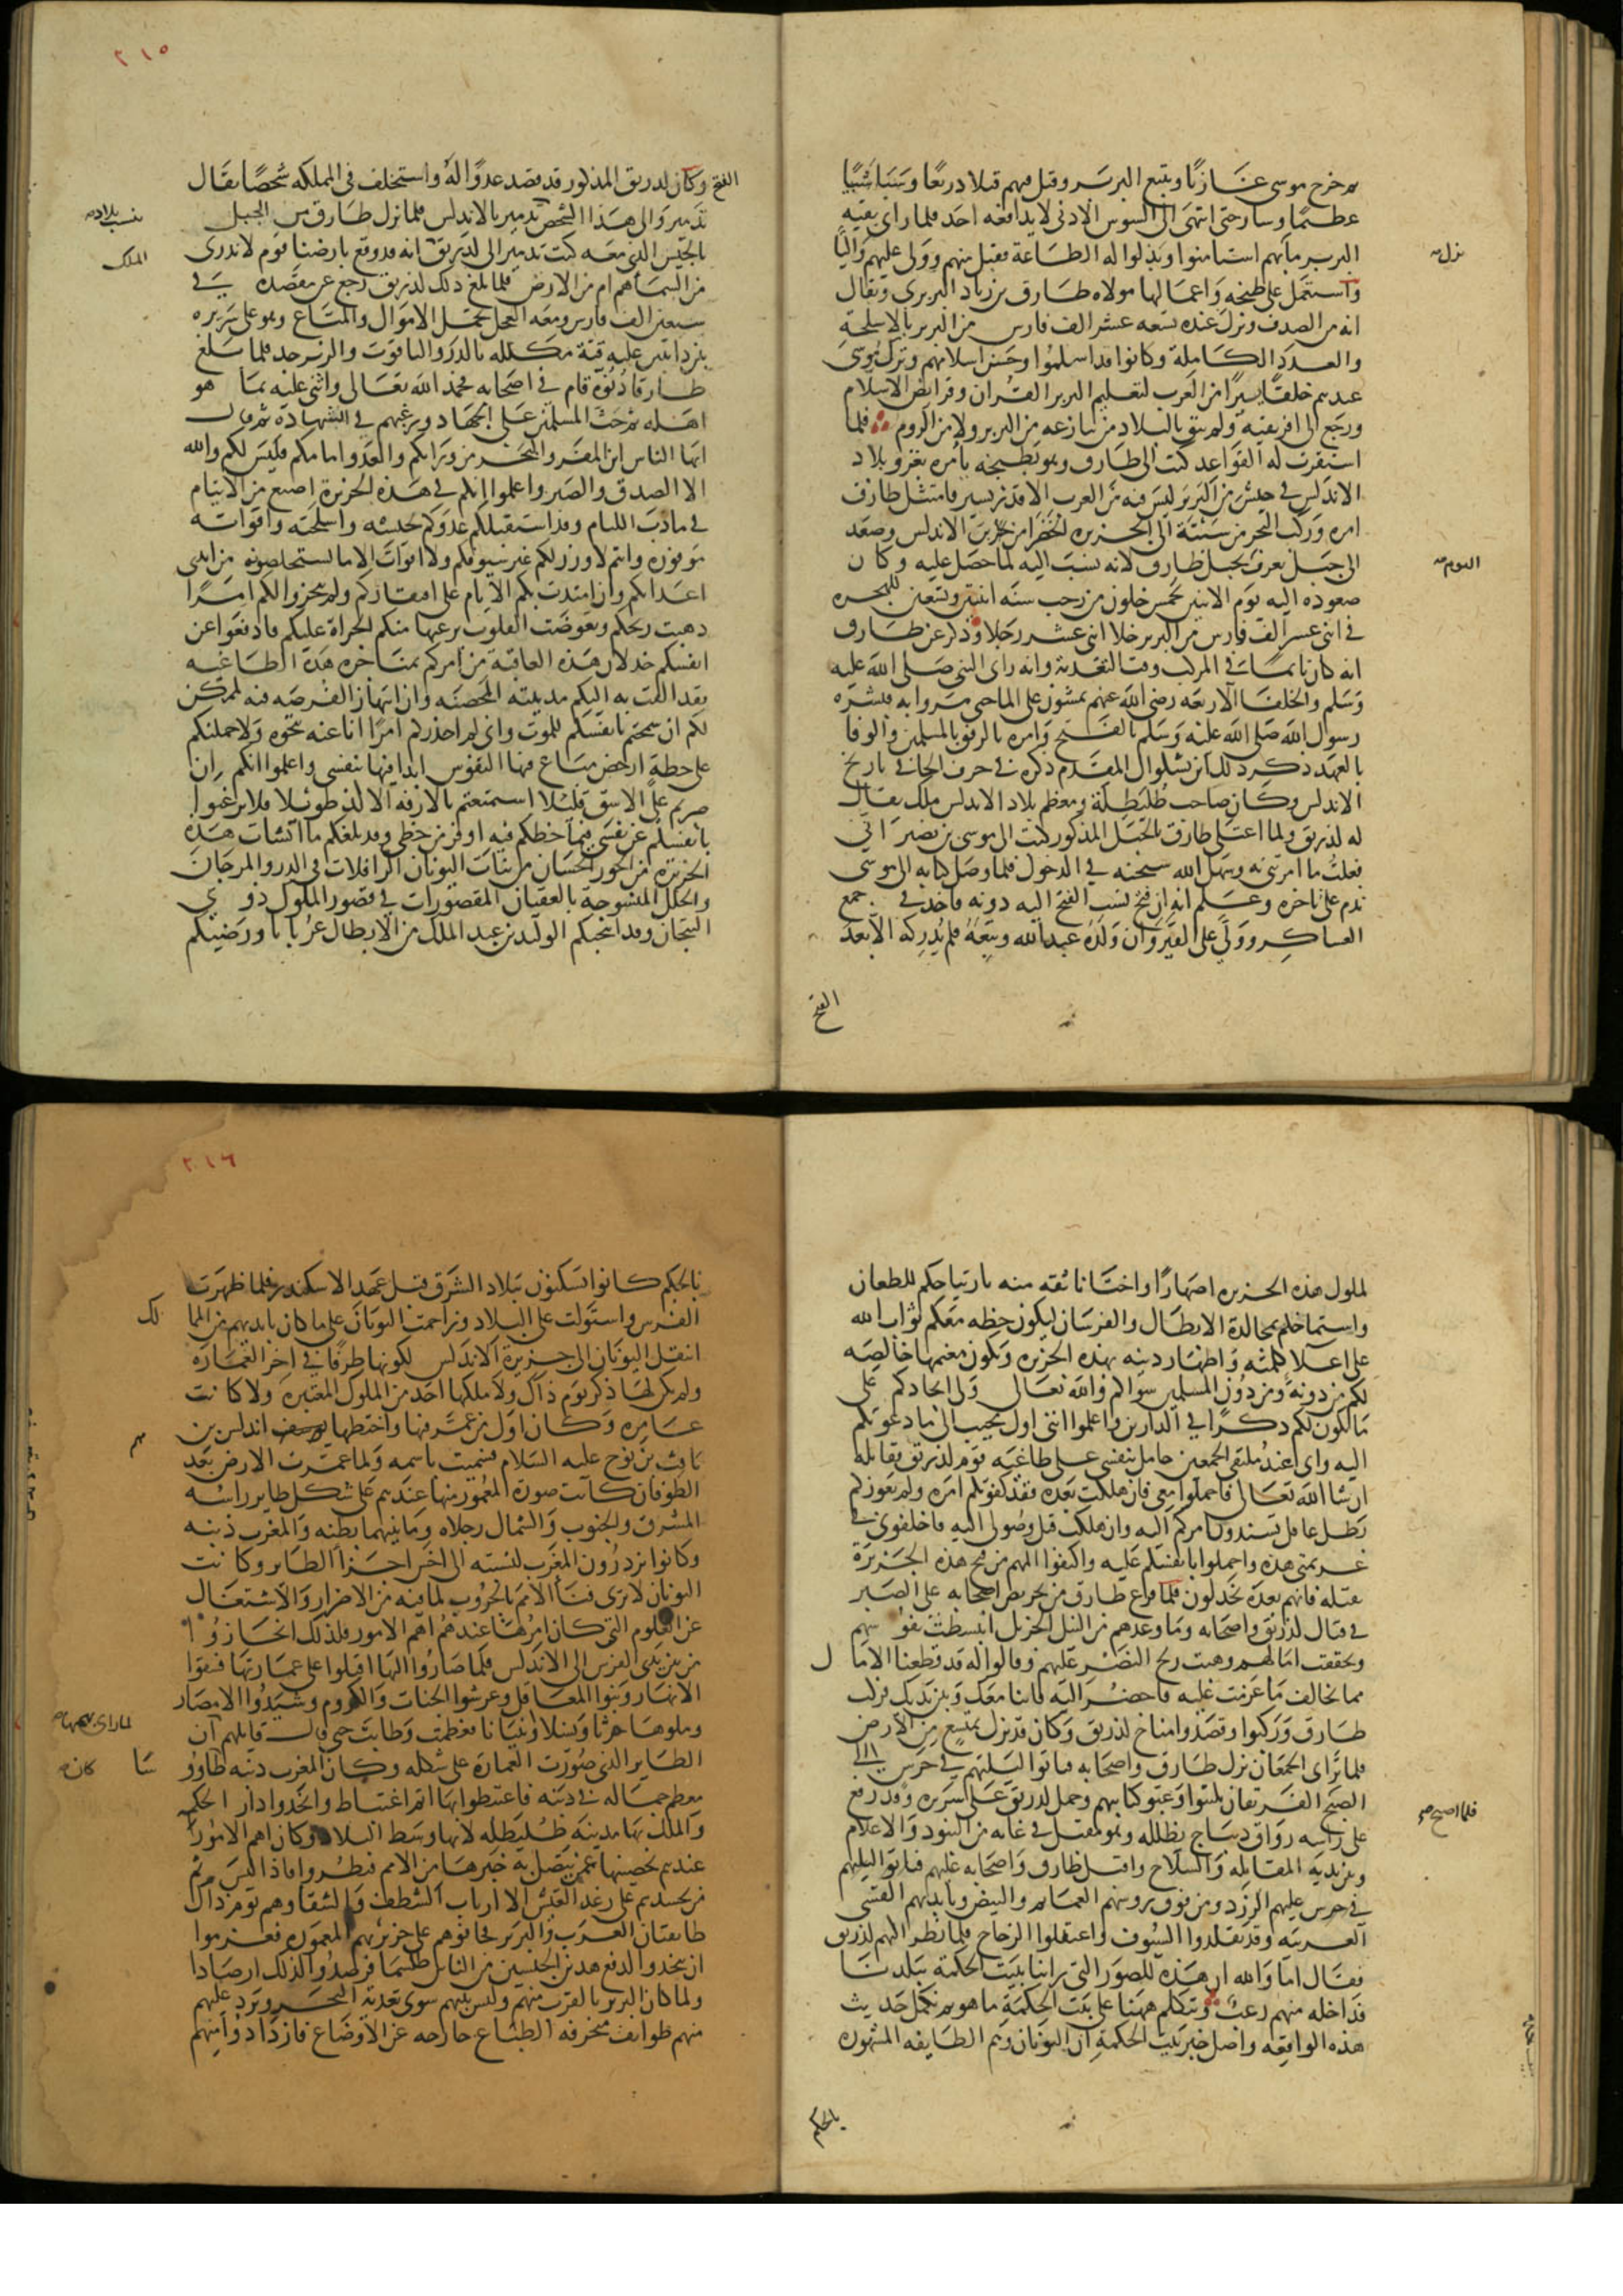 ثم خرج موسى غازيا وتتبع البربر وقتل فيهم قتلا ذريعا وسبا سبيا
عظيما وسار حتى انتهى الى السوس الادنى لا يدافعه احد فلما راى بقية
البربر ما بهم استامنوا وبذلوا له الطاعة فقبل منهم وولى عليهم واليا
نزل
واستعمل على طنجة واعمالها مولاه طارق بن زياد البربرى ويقال
انه من الصدف ونزل عنده تسعه عشر الف فارس من البربر بالاسلحة
والعدد الكاملة وكانوا قد اسلموا وحسن اسلامهم وترك موسى
عندهم خلقا يسيرا من العرب لتعليم البربر القران وفرايض الاسلام
ورجع الى افريقية ولم يبق بالبلاد من ينازعه من البربر ولا من الروم فلما
استقرت له القواعد كتب الى طارق وهو بطنجه يامره بغزو بلاد
الاندلس في جيش من البربر ليس فيه من العرب الا قدر يسير فامتثل طارق
امره وركب البحر من سبتة الى الجزيره الخضرا من بر الاندلس وصعد
الى جبل يعرف بجبل طارق لانه نسب اليه لما حصل عليه وكان
صعوده اليه يوم الاثنين لخمس خلون من رجب سنه اثنتين وتسعين للهجره
في اثنى عشر الف فارس من البربر خلا اثنى عشر رجلا وذكر عن طارق
انه كان نايما في المركب وقت التعدية وانه راى النبى صلى الله عليه
وسلم والخلفا الاربعه رضى الله عنهم يمشون على الما حتى مروا به فبشره
رسول الله صلى الله عليه وسلم بالفتح وامره بالرفق بالمسلمين والوفا
بالعهد ذكر ذلك ابن بشكوال المقدم ذكره في حرف الخا في تاريخ
الاندلس وكان صاحب طليطلة ومعظم بلاد الاندلس ملك يقال
له لذريق ولما اعتلى طارق بالجبل المذكور كتب الى موسى بن نصير انى
فعلت ما امرتنى به وسهل الله سبحنه في الدخول فلما وصل كتابه الى موسى
ندم على تاخره وعلم انه ان فتح نسب الفتح اليه دونه فاخذ في جمع
العساكر وولى على القيروان ولده عبد الله وتبعه فلم يدركه الا بعد
الفتح
٢١٥
الفتح وكان لدريق المذكور قد قصد عدوا له واستخلف فى المملكه شخصا يقال
تدمير والى هذا الشخص تدمير بالاندلس فلما نزل طارق من الجبل
تنسب بلاده
بالجيش الذى معه كتب تدمير الى لذريق انه قد وقع بارضنا قوم لا ندرى
الملك
من السما هم ام من الارض فلما بلغ ذلك لذريق رجع عن مقصده في
سبعين الف فارس ومعه العجل تحمل الاموال والمتاع وهو على سريره
بين دابتين عليه قبة مكلله بالدر والياقوت والزبرجد فلما بلغ
طارقا دنوه قام في اصحابه فحمد الله تعالى واثنى عليه بما هو
اهله ثم حث المسلمين على الجهاد ورغبهم في الشهادة ثم قال
ايها الناس اين المفر والبحر من ورائكم والعدو امامكم فليس لكم والله
الا الصدق والصبر واعلموا انكم في هذه الجزيرة اضيع من الايتام
في مادب اللئام وقد استقبلكم عدوكم بجيشه واسلحته واقواته
موفوره وانتم لا وزر لكم غير سيوفكم ولا اقوات الا ما تستخلصونه من ايدى
اعدائكم وان امتدت بكم الايام على افتقاركم ولم تنجزوا لكم امرا
ذهبت ريحكم وتعوضت القلوب برعبها منكم الجراة عليكم فادفعوا عن
انفسكم خذلان هذه العاقبة من امركم بمناجزه هذه الطاغيه
فقد القت به اليكم مدينته المحصنه وان انتهاز الفرصه فيه لممكن
لكم ان سمحتم بانفسكم للموت وانى لم احذركم امرا انا عنه بنجوه ولا حملتكم
على خطة ارخص متاع فيها النفوس ابدا فيها بنفسى واعلموا انكم ان
صبرتم على الاشق قليلا استمتعتم بالارفه الالذ طويلا فلا ترغبوا
بانفسكم عن نفسى فيما حظكم فيه اوفر من حظى وقد بلغكم ما انشات هذه
الجزيره من الحور الحسان من بنات اليونان الرافلات فى الدر والمرجان
والحلل المنسوجة بالعقيان المقصورات في قصور الملوك ذوى
التيجان وقد انتخبكم الوليد بن عبد الملك من الابطال عربانا ورضيكم
لملوك هذه الجزيره اصهارا واختانا ثقه منه بارتياحكم للطعان
واستماحكم بمجالدة الابطال والفرسان ليكون حظه معكم ثواب الله
على اعلا كلمته واظهار دينه بهذه الجزيره ويكون مغنمها خالصه
لكم من دونه ومن دون المسلمين سواكم والله تعالى ولى انجادكم على
ما يكون لكم ذكرا في الدارين واعلموا اننى اول مجيب الى ما دعوتكم
اليه وانى عند ملتقى الجمعين حامل بنفسى على طاغيه قومه لذريق فقاتله
ان شا الله تعالى فاحملوا معى فان هلكت بعده فقد كفيتكم امره ولم يعوزكم
بطل عاقل تسندون امركم اليه وان هلكت قبل وصولى اليه فاخلفونى في
عزيمتى هذه واحملوا بانفسكم عليه واكتفوا الهم من فتح هذه الجزيرة
بقتله فانهم بعده يخذلون فلما فرغ طارق من تحريض اصحابه على الصبر
في قتال لذريق واصحابه وما وعدهم من النيل الجزيل انبسطت نفوسهم
وتحققت امالهم وهبت ريح النصر عليهم وقالوا له قد قطعنا الامال
مما يخالف ما عزمت عليه فاحضر اليه فاننا معك وبين يديك فركب
طارق وركبوا وقصدوا مناخ لذريق وكان قد نزل بمتسع من الارض
فلما تراى الجمعان نزل طارق واصحابه فباتوا ليلتهم في حرس الى
الصبح الفريقان تلببوا وعبوا كتايبهم وحمل لذريق على سريره وقد رفع
فلما اصبح
على راسه رواق ديباج يظلله وهو مقبل في غابه من البنود والاعلام
وبين يديه المقاتله والسلاح واقبل طارق واصحابه عليهم
عليهم الزرد ومن فوق رووسهم العمائم البيض وبايديهم القسى
العربيه وقد تقلدوا السيوف واعتقلوا الرماح فلما نظر اليهم لذريق
فقال اما والله ان هذه للصور التى راينا ببيت الحكمة ببلدنا
فداخله منهم رعب ونتكلم ههنا على بيت الحكمة ما هو ثم نكمل حديث
هذه الواقعه واصل خبر بيت الحكمة ان اليونان وهم الطايفه المشهوره
بالحكم
٢١٦
بالحكم كانوا يسكنون ببلاد الشرق قبل عهد الاسكندر فلما ظهرت
الفرس واستولت على البلاد وزاحمت اليونان على ما كان بايديهم من الممالك
انتقل اليونان الى جزيرة الاندلس لكونها طرفا في اخر العماره
ولم يكن لها ذكر يوم ذاك ولا ملكها احد من الملوك المعتبره ولا كانت
عامره وكان اول من عمر فيها واختطها اندلس بن
يافث بن نوح عليه السلام فسميت باسمه ولما عمرت الارض بعد
الطوفان كانت صورة المعمور منها عندهم على شكل طاير راسه
المشرق والجنوب والشمال رجلاه وما بينهما بطنه والمغرب ذنبه
وكانوا يزدرون المغرب لنسبته الى اخس اجزا الطاير وكانت
اليونان لا ترى فنا الامم بالحروب لما فيه من الاضرار والاشتغال
عن العلوم التى كان امرها عندهم اهم الامور فلذلك انحازوا
من بين يدى الفرس الى الاندلس فلما صاروا اليها اقبلوا على عمارتها فشقوا
الانهار وبنوا المعاقل وغرسوا الجنات والكروم وشيدوا الامصار
وملوها حرثا ونسلا وبنيانا فعظمت وطابت حتى قال قايلهم ان
لما راى بهجتها
الطاير الذى صورت العمارة على شكله وكان المغرب ذنبه طاووسا
كان
معظم جماله في ذنبه فاغتبطوا بها اتم اغتباط واتخذوا دار الحكمه
والملك بها مدينة طليطله لانها وسط البلاد وكان اهم الامور
عندهم تحصينها عمن يتصل به خبرها من الامم فنظروا فاذا ليس ثم
من يحسدهم على رغد العيش الا ارباب الشظف والشقا وهم يوم ذاك
طايفتان العرب والبربر فخافوهم على جزيرتهم المعموره فعزموا
ان يتخذوا لدفع هذين الجنسين من الناس طلسما فرصدوا لذلك ارصادا
ولما كان البربر بالقرب منهم وليس بينهم سوى تعدية البحر ويرد عليهم
منهم طوايف منحرفه الطباع خارجه عن الاوضاع فازدادوا منهم